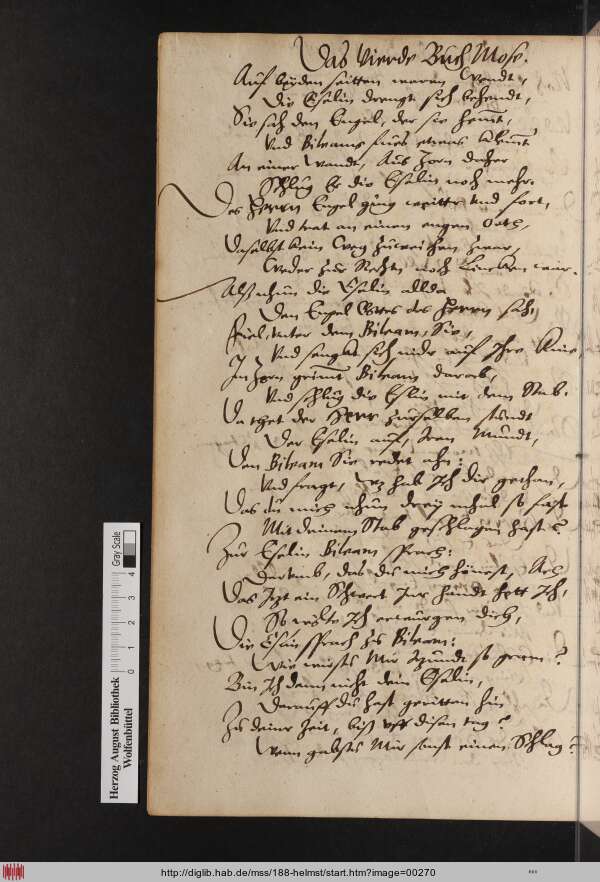 Das Vierde Buch Mose.
Auf beyden seitten waren Wendt,
Die Eselin drengt sich behendt,
Sie sah den Engel, der sie hemmt,
Und Bileams fues etwas klemmt
An einer Wandt, Aus Zorn daher
Schlug Er die Eselin noch mehr.
Des Herrn Engel ging weitter und fort,
Und trat an einen engen Orth,
Daselbst kein Weg zuweichen zwar,
Weder zur Rechten noch Lincken war.
Alß nhun die Eselin allda
Den Engel Gottes des Herrn sah,
fiel unter dem Bileam, Sie,
Und sengkt sich nidr auf Ihre Knie,
In Zorn grimmt Bileam darob,
Und schlug die Eslin mit dem Stab.
Da thet der Herr zurselben stundt
Der Eselin auf, Iren Mundt,
Den Bileam Sie redet ahn:
Und fragt, Wz hab Ich dir gethan,
Das du mich nhun drey mhal so fast
Mit deinem Stab geschlagen hast?
Zur Eselin Bileam sprach:
Darumb, das du mich hönest, Ach
Das Itzt ein Schwert Inr handt hett Ich,
So wolte Ich erwurgen dich,
Die Eslin sprach zu Bileam:
Wie wirstu Mir itzundt so gram?
Bin Ich dann nicht dein Eselin,
Darauff du hast geritten hin
Zu deiner Zeit, biß uff disen tag?
Wenn gabstu Mir sonst einen Schlag?
Herzog August Bibliothek
Wolfenbüttel
Gray Scale
0 1 2 3 4
http://diglib.hab.de/mss/188-helmst/start.htm?image=00270